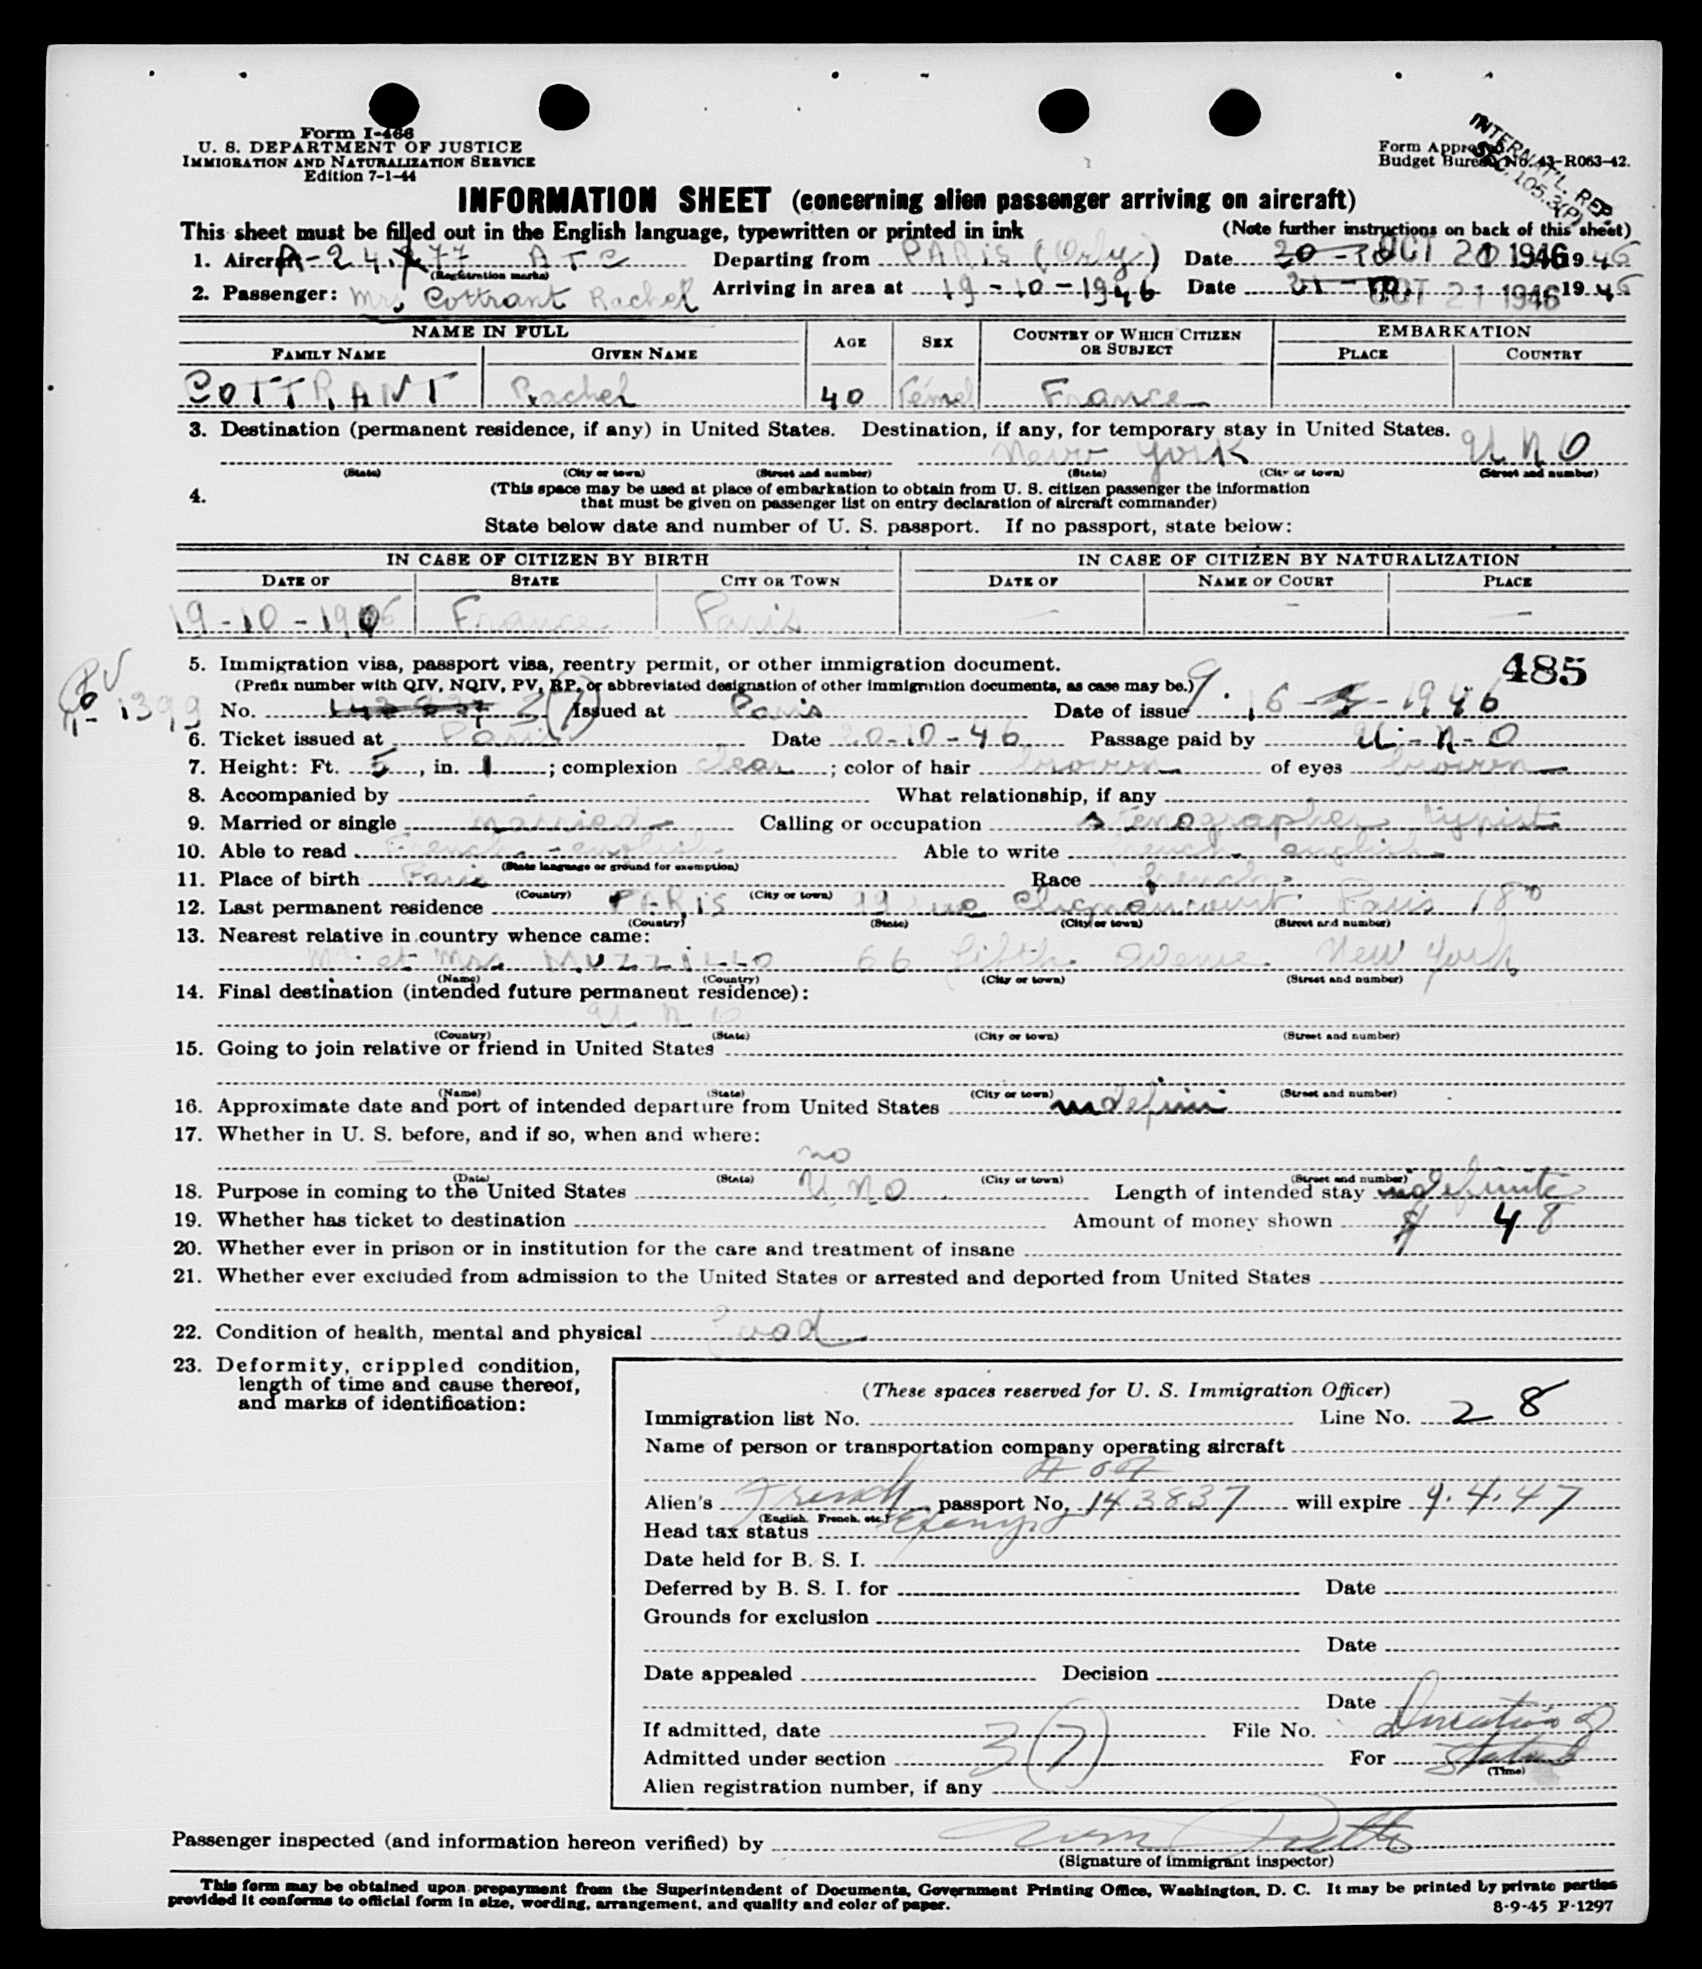 Form I-466
U. S. DEPARTMENT OF JUSTICE
IMMIGRATION AND NATURALIZATION SERVICE
Edition 7-1-44
Form Approved
Budget Bureau No. 43-R063-42.
INTERNAT'L. REP.
SEC. 105.3(P)
INFORMATION SHEET (concerning alien passenger arriving on aircraft)
This sheet must be filled out in the English language, typewritten or printed in ink (Note further instructions on back of this sheet)
1. Aircraft ATC Departing from PARis (Orly) Date OCT 20 1946 1946
(Registration marks)
2. Passenger: Mrs Cottrant Rachel Arriving in area at 19-10-1946 Date OCT 21 1946 1946
NAME IN FULL AGE SEX COUNTRY OF WHICH CITIZEN OR SUBJECT EMBARKATION
FAMILY NAME GIVEN NAME PLACE COUNTRY
COTTRANT Rachel 40 Fémel France
3. Destination (permanent residence, if any) in United States. Destination, if any, for temporary stay in United States.
New York U N O
(State) (City or town) (Street and number) (State) (City or town) (Street and number)
4. (This space may be used at place of embarkation to obtain from U. S. citizen passenger the information
that must be given on passenger list on entry declaration of aircraft commander)
State below date and number of U. S. passport. If no passport, state below:
IN CASE OF CITIZEN BY BIRTH IN CASE OF CITIZEN BY NATURALIZATION
DATE OF STATE CITY OR TOWN DATE OF NAME OF COURT PLACE
19-10-1906 France Paris — — —
5. Immigration visa, passport visa, reentry permit, or other immigration document. 485
(Prefix number with QIV, NQIV, PV, RP, or abbreviated designation of other immigration documents, as case may be.)
PV
1399
No. 3(7) Issued at Paris Date of issue 16-9-1946
6. Ticket issued at Paris Date 20-10-46 Passage paid by U-N-O
7. Height: Ft. 5, in. 1; complexion clear; color of hair brown of eyes brown
8. Accompanied by - What relationship, if any
9. Married or single married Calling or occupation stenographer typist
10. Able to read french - english Able to write french - english
(State language or ground for exemption)
11. Place of birth Paris Race french
(Country) (City or town)
12. Last permanent residence PARIS 99 rue Clignancourt Paris 18°
(Country) (State) (City or town) (Street and number)
13. Nearest relative in country whence came:
Mr et Mrs MUZZILLO 66 fifth Avenue New York
(Name) (Country) (City or town) (Street and number)
14. Final destination (intended future permanent residence):
U N O
(Country) (State) (City or town) (Street and number)
15. Going to join relative or friend in United States
(Name) (State) (City or town) (Street and number)
16. Approximate date and port of intended departure from United States indefini
17. Whether in U. S. before, and if so, when and where:
— no
(Date) (State) (City or town) (Street and number)
18. Purpose in coming to the United States U.N.O. Length of intended stay indefinite
19. Whether has ticket to destination Amount of money shown $ 48
20. Whether ever in prison or in institution for the care and treatment of insane
21. Whether ever excluded from admission to the United States or arrested and deported from United States
22. Condition of health, mental and physical Good
23. Deformity, crippled condition,
length of time and cause thereof,
and marks of identification:
(These spaces reserved for U. S. Immigration Officer)
Immigration list No. Line No. 28
Name of person or transportation company operating aircraft
Alien's French passport No. 143837 will expire 9.4.47
(English, French, etc.)
Head tax status Exempt
Date held for B. S. I.
Deferred by B. S. I. for Date
Grounds for exclusion
Date
Date appealed Decision
Date
If admitted, date File No. Duration of
Admitted under section 3(7) For Status
(Time)
Alien registration number, if any
Passenger inspected (and information hereon verified) by
(Signature of immigrant inspector)
This form may be obtained upon prepayment from the Superintendent of Documents, Government Printing Office, Washington, D. C. It may be printed by private parties
provided it conforms to official form in size, wording, arrangement, and quality and color of paper.
8-9-45 P-1297